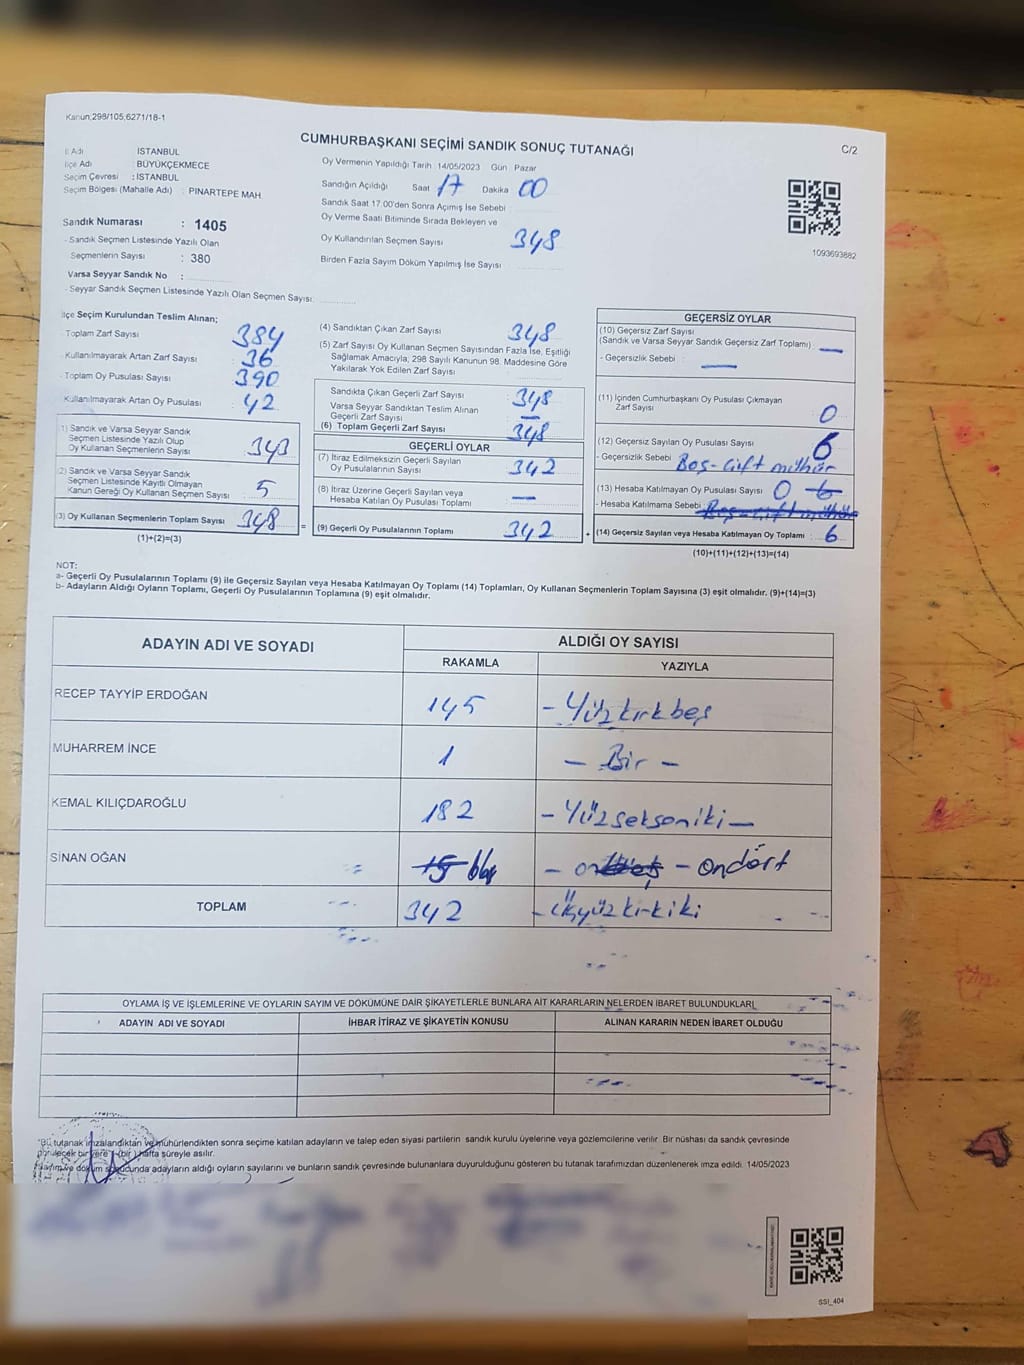 Kanun:298/105,6271/18-1
CUMHURBAŞKANI SEÇİMİ SANDIK SONUÇ TUTANAĞI
C/2
İl Adı : İSTANBUL
İlçe Adı : BÜYÜKÇEKMECE
Seçim Çevresi : İSTANBUL
Seçim Bölgesi (Mahalle Adı) : PINARTEPE MAH
Sandık Numarası : 1405
- Sandık Seçmen Listesinde Yazılı Olan
Seçmenlerin Sayısı : 380
Varsa Seyyar Sandık No :
- Seyyar Sandık Seçmen Listesinde Yazılı Olan Seçmen Sayısı:
Oy Vermenin Yapıldığı Tarih : 14/05/2023 Gün : Pazar
Sandığın Açıldığı Saat 17 Dakika 00
Sandık Saat 17:00'den Sonra Açımış İse Sebebi :
Oy Verme Saati Bitiminde Sırada Bekleyen ve
Oy Kullandırılan Seçmen Sayısı 348
Birden Fazla Sayım Döküm Yapılmış İse Sayısı
1093693882
İlçe Seçim Kurulundan Teslim Alınan;
- Toplam Zarf Sayısı 384
- Kullanılmayarak Artan Zarf Sayısı 36
- Toplam Oy Pusulası Sayısı 390
- Kullanılmayarak Artan Oy Pusulası : 42
(1) Sandık ve Varsa Seyyar Sandık
Seçmen Listesinde Yazılı Olup
Oy Kullanan Seçmenlerin Sayısı 343
(2) Sandık ve Varsa Seyyar Sandık
Seçmen Listesinde Kayıtlı Olmayan
Kanun Gereği Oy Kullanan Seçmen Sayısı 5
(3) Oy Kullanan Seçmenlerin Toplam Sayısı 348
(1)+(2)=(3)
=
(4) Sandıktan Çıkan Zarf Sayısı 348
(5) Zarf Sayısı Oy Kullanan Seçmen Sayısından Fazla İse, Eşitliği
Sağlamak Amacıyla, 298 Sayılı Kanunun 98. Maddesine Göre
Yakılarak Yok Edilen Zarf Sayısı
Sandıkta Çıkan Geçerli Zarf Sayısı 348
Varsa Seyyar Sandıktan Teslim Alınan
Geçerli Zarf Sayısı —
(6) Toplam Geçerli Zarf Sayısı 348
GEÇERLİ OYLAR
(7) İtiraz Edilmeksizin Geçerli Sayılan
Oy Pusulalarının Sayısı 342
(8) İtiraz Üzerine Geçerli Sayılan veya
Hesaba Katılan Oy Pusulası Toplamı —
(9) Geçerli Oy Pusulalarının Toplamı 342
+
GEÇERSİZ OYLAR
(10) Geçersiz Zarf Sayısı
(Sandık ve Varsa Seyyar Sandık Geçersiz Zarf Toplamı) —
- Geçersizlik Sebebi : —
(11) İçinden Cumhurbaşkanı Oy Pusulası Çıkmayan
Zarf Sayısı 0
(12) Geçersiz Sayılan Oy Pusulası Sayısı 6
- Geçersizlik Sebebi : Boş-Çift mühür
(13) Hesaba Katılmayan Oy Pusulası Sayısı 0 6
- Hesaba Katılmama Sebebi : Boş-Çift mühür
(14) Geçersiz Sayılan veya Hesaba Katılmayan Oy Toplamı : 6
(10)+(11)+(12)+(13)=(14)
NOT:
a- Geçerli Oy Pusulalarının Toplamı (9) ile Geçersiz Sayılan veya Hesaba Katılmayan Oy Toplamı (14) Toplamları, Oy Kullanan Seçmenlerin Toplam Sayısına (3) eşit olmalıdır. (9)+(14)=(3)
b- Adayların Aldığı Oyların Toplamı, Geçerli Oy Pusulalarının Toplamına (9) eşit olmalıdır.
ADAYIN ADI VE SOYADI
ALDIĞI OY SAYISI
RAKAMLA YAZIYLA
RECEP TAYYİP ERDOĞAN 145 - Yüzkırkbeş
MUHARREM İNCE 1 - Bir -
KEMAL KILIÇDAROĞLU 182 - Yüzsekseniki -
SİNAN OĞAN 15 - onbeş - ondört
TOPLAM 342 - üçyüzkırkiki
OYLAMA İŞ VE İŞLEMLERİNE VE OYLARIN SAYIM VE DÖKÜMÜNE DAİR ŞİKAYETLERLE BUNLARA AİT KARARLARIN NELERDEN İBARET BULUNDUKLARI,
ADAYIN ADI VE SOYADI İHBAR İTİRAZ VE ŞİKAYETİN KONUSU ALINAN KARARIN NEDEN İBARET OLDUĞU
"Bu tutanak imzalandıktan ve mühürlendikten sonra seçime katılan adayların ve talep eden siyasi partilerin sandık kurulu üyelerine veya gözlemcilerine verilir. Bir nüshası da sandık çevresinde
görülecek bir yere 1 (bir) hafta süreyle asılır.
Sayım ve döküm sonucunda adayların aldığı oyların sayılarını ve bunların sandık çevresinde bulunanlara duyurulduğunu gösteren bu tutanak tarafımızdan düzenlenerek imza edildi. 14/05/2023
SSİ_404